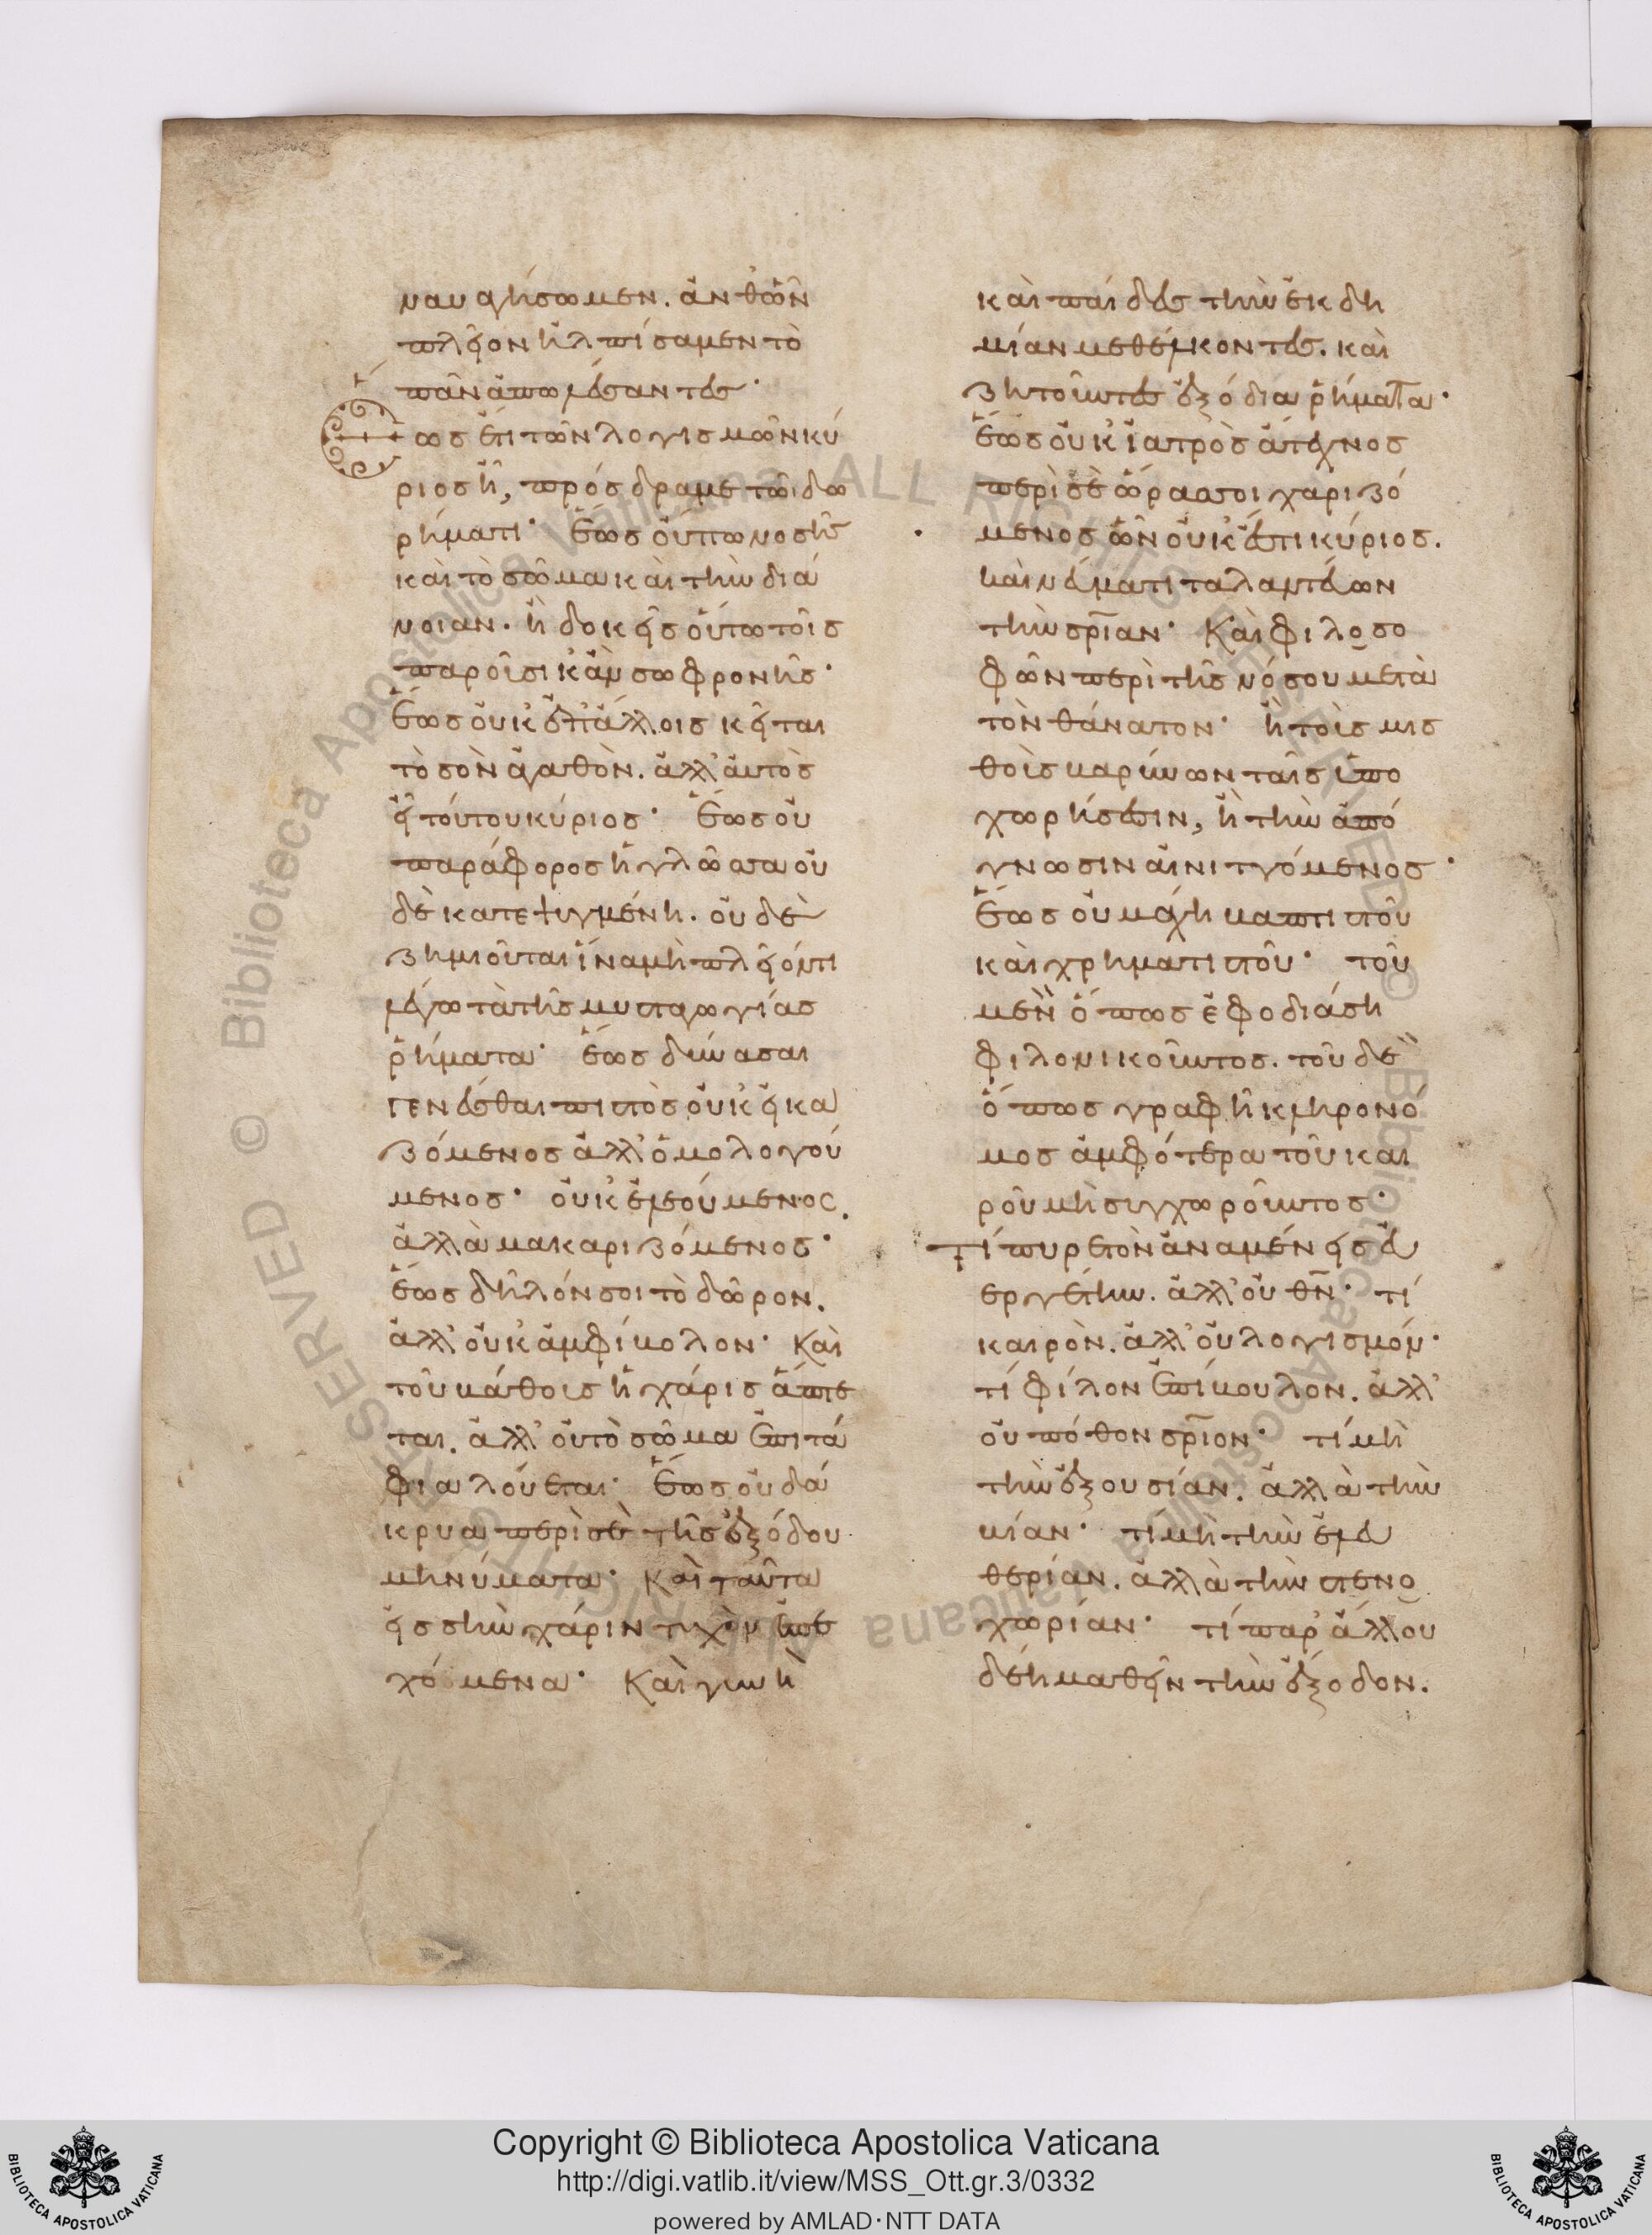 ναυαγήσωμεν. ἀνθὧν
πλεῖον ἠλπίσαμεν τὸ
πᾶν ἀπωλέσαντες·
Ἕως ἔτι τῶν λογισμῶν κύ
ριος ἦ, πρόσδραμε τῶι δω
ρήματι· ἕως οὔπω νοσῆς
καὶ τὸ σῶμα καὶ τὴν διά
νοιαν. ἢ δοκεῖς οὕτω τοῖς
παροῦσι κἂν σωφρονῆς·
ἕως οὐκ ἐπ' ἄλλοις κεῖται
τὸ σὸν ἀγαθὸν. ἀλλ' αὐτὸς
εἶ τούτου κύριος· ἕως οὐ
παράφορος ἡ γλῶσσα οὐ
δὲ κατεψυγμένη. οὐδὲ
ζημιοῦται ἵνα μὴ πλεῖόν τι
λέγω τὰ τῆς μυσταγωγίας
ῥήματα· ἕως δύνασαι
γενέσθαι πιστὸς οὐκ εἰκα
ζόμενος ἀλλ' ὁμολογού
μενος· οὐκ ἐλεούμενος.
ἀλλὰ μακαριζόμενος·
ἕως δῆλόν σοι τὸ δῶρον.
ἀλλ' οὐκ ἀμφίβολον· Καὶ
τοῦ βάθους ἡ χάρις ἅπτε
ται. ἀλλ' οὐ τὸ σῶμα ἐπιτά
φια λούεται· ἕως οὐ δά
κρυα περὶ σὲ τῆς ἐξόδου
μηνύματα· Καὶ ταῦτα
εἰς σὴν χάριν τυχὸν ἐπε
χόμενα· Καὶ γυνὴ
καὶ παῖδες τὴν ἐκδη
μίαν μεθέλκοντες. καὶ
ζητοῦντες ἐξόδια ῥήματα·
ἕως οὐκ ἰατρὸς ἄτεχνος
περὶ σὲ ὥρας σοι χαριζό
μενος ὧν οὐκ ἔστι κύριος.
καὶ νεύματι ταλαντεύων
τὴν σρίαν· Καὶ φιλοσο
φῶν περὶ τῆς νόσου μετὰ
τὸν θάνατον· ἢ τοῖς μισ
θοῖς βαρύνων ταῖς ὑπο
χωρήσεσιν, ἢ τὴν ἀπό
γνωσιν αἰνιττόμενος·
ἕως οὐ μάχη βαπτιστοῦ
καὶ χρηματιστοῦ· τοῦ
μὲν ὅπως ἐφοδιάση
φιλονικοῦντος. τοῦ δὲ
ὅπως γραφῆ κληρονό
μος ἀμφότερα τοῦ και
ροῦ μὴ συγχωροῦντος·
Τί πυρετὸν ἀναμένεις εὐ
εργέτην. ἀλλ' οὐ θν· τί
καιρὸν. ἀλλ' οὐ λογισμόν·
τί φίλον ἐπίβουλον. ἀλλ'
οὐ πόθον σρίον· τί μὴ
τὴν ἐξουσίαν. ἀλλὰ τὴν
βίαν· τί μὴ τὴν ἐλευ
θερίαν. ἀλλὰ τὴν στενο
χωρίαν· τί παρ' ἄλλου
δέη μαθεῖν τὴν ἔξοδον.
Copyright © Biblioteca Apostolica Vaticana
http://digi.vatlib.it/view/MSS_Ott.gr.3/0332
powered by AMLAD·NTT DATA